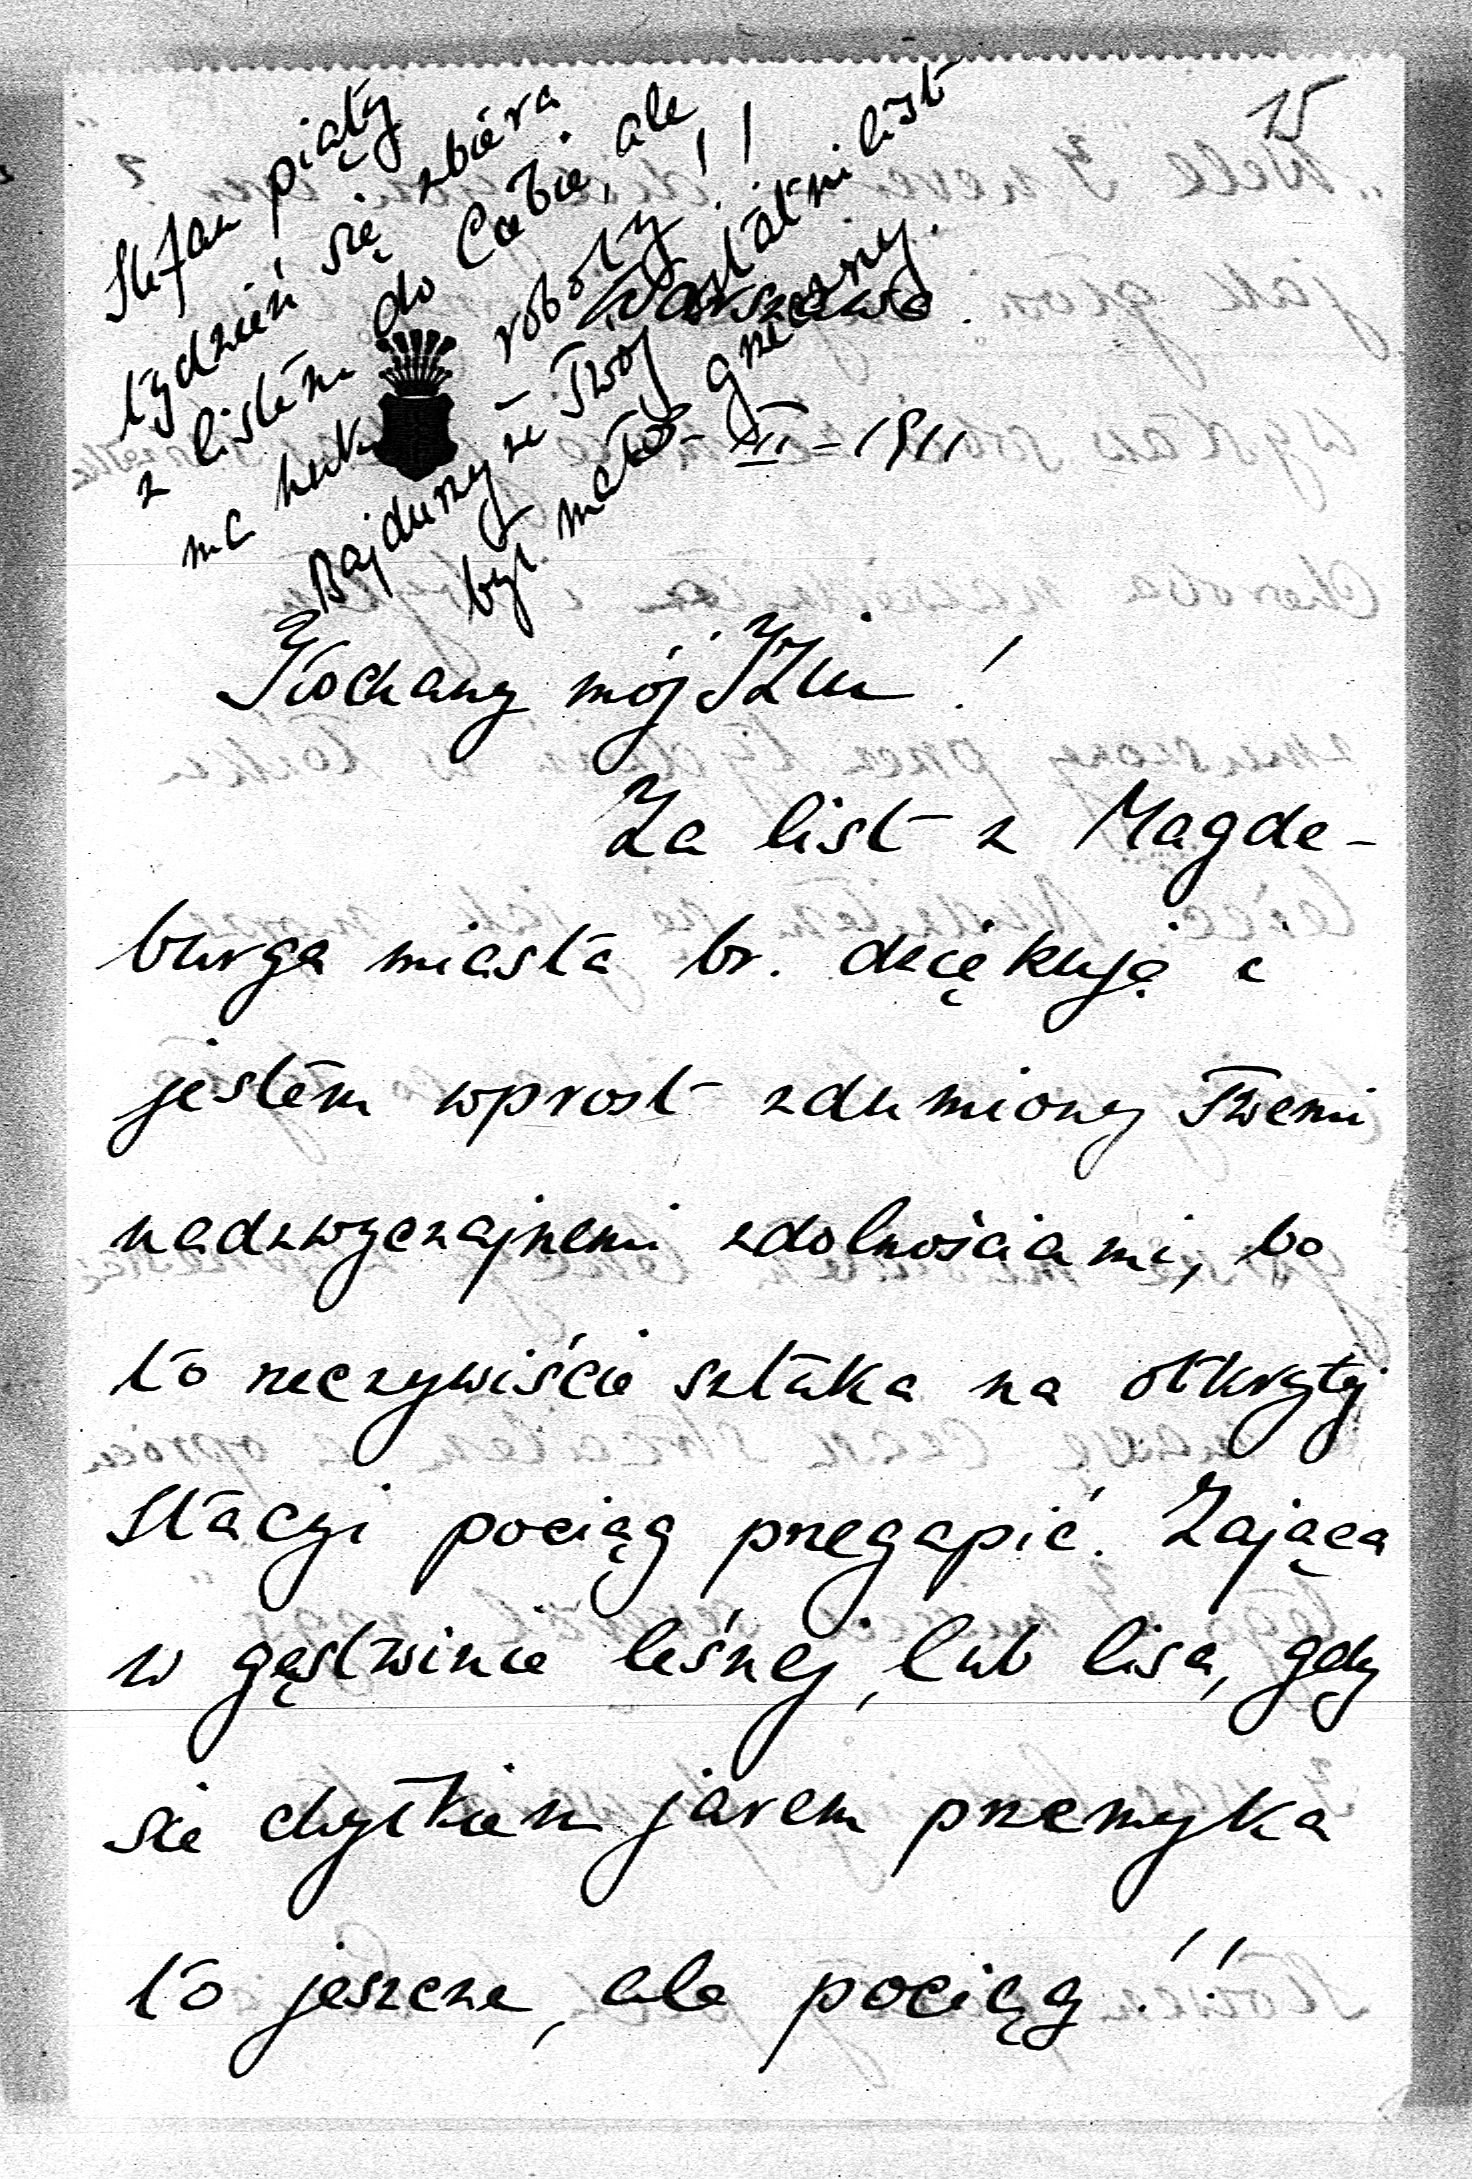 15
Stefan piąty
tydzień się zbiera
z listem do Ciebie, ale
ma huk roboty!!!
Bajdurzy że Twój ostatni list
był mało grzeczny.
Warszawa.
III – 1911
Kochany mój IZiu!
Za list z Magde-
burga miasta br. dziękuję i
jestem wprost zdumiony Twemi
nadzwyczajnemi zdolnościami, bo
to rzeczywiście sztuka na otkrytej
Stacyi pociąg przegapić. Zająca
w gęstwinie leśnej, lub lisa, gdy
sie chyłkiem jarem przemyka
to jeszcze, ale pociąg!!